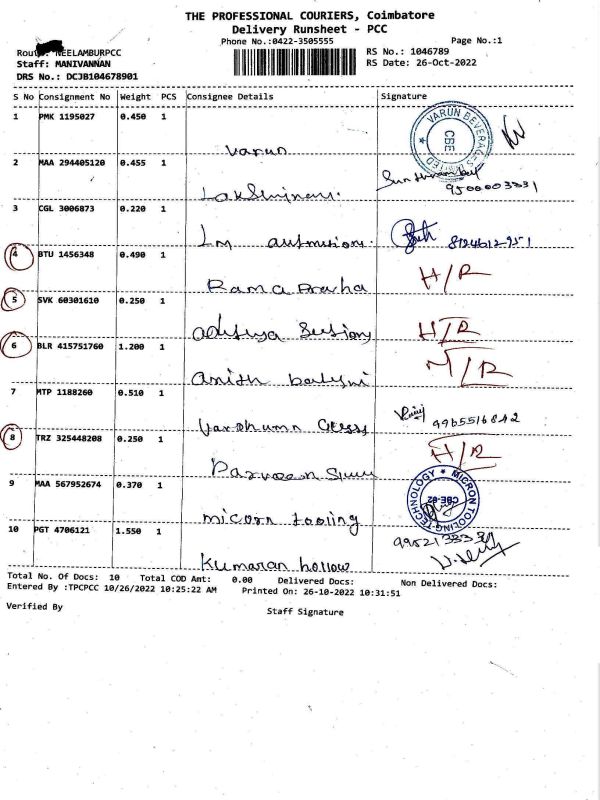 THE PROFESSIONAL COURIERS, Coimbatore
Delivery Runsheet - PCC
Phone No.:0422-3505555
Page No.:1
Route: NEELAMBURPCC
RS No.: 1046789
Staff: MANIVANNAN
RS Date: 26-Oct-2022
DRS No.: DCJB104678901
S No Consignment No Weight PCS Consignee Details Signature
1 PMK 1195027 0.450 1
varun
VARUN BEVERAGES LIMITED CBE
2 MAA 294405120 0.455 1
9500003331
3 CGL 3006873 0.220 1
LM
4 BTU 1456348 0.490 1
Rama H/R
5 SVK 60301610 0.250 1
aditya H/R
6 BLR 415751760 1.200 1
anish
7 MTP 1188260 0.510 1
8 TRZ 325448208 0.250 1
H/R
9 MAA 567952674 0.370 1
micorn tooling
MICRON TOOLING TECHNOLOGY CBE-62
10 PGT 4706121 1.550 1
Kumaran hollow
Total No. Of Docs: 10 Total COD Amt: 0.00 Delivered Docs: Non Delivered Docs:
Entered By :TPCPCC 10/26/2022 10:25:22 AM Printed On: 26-10-2022 10:31:51
Verified By
Staff Signature